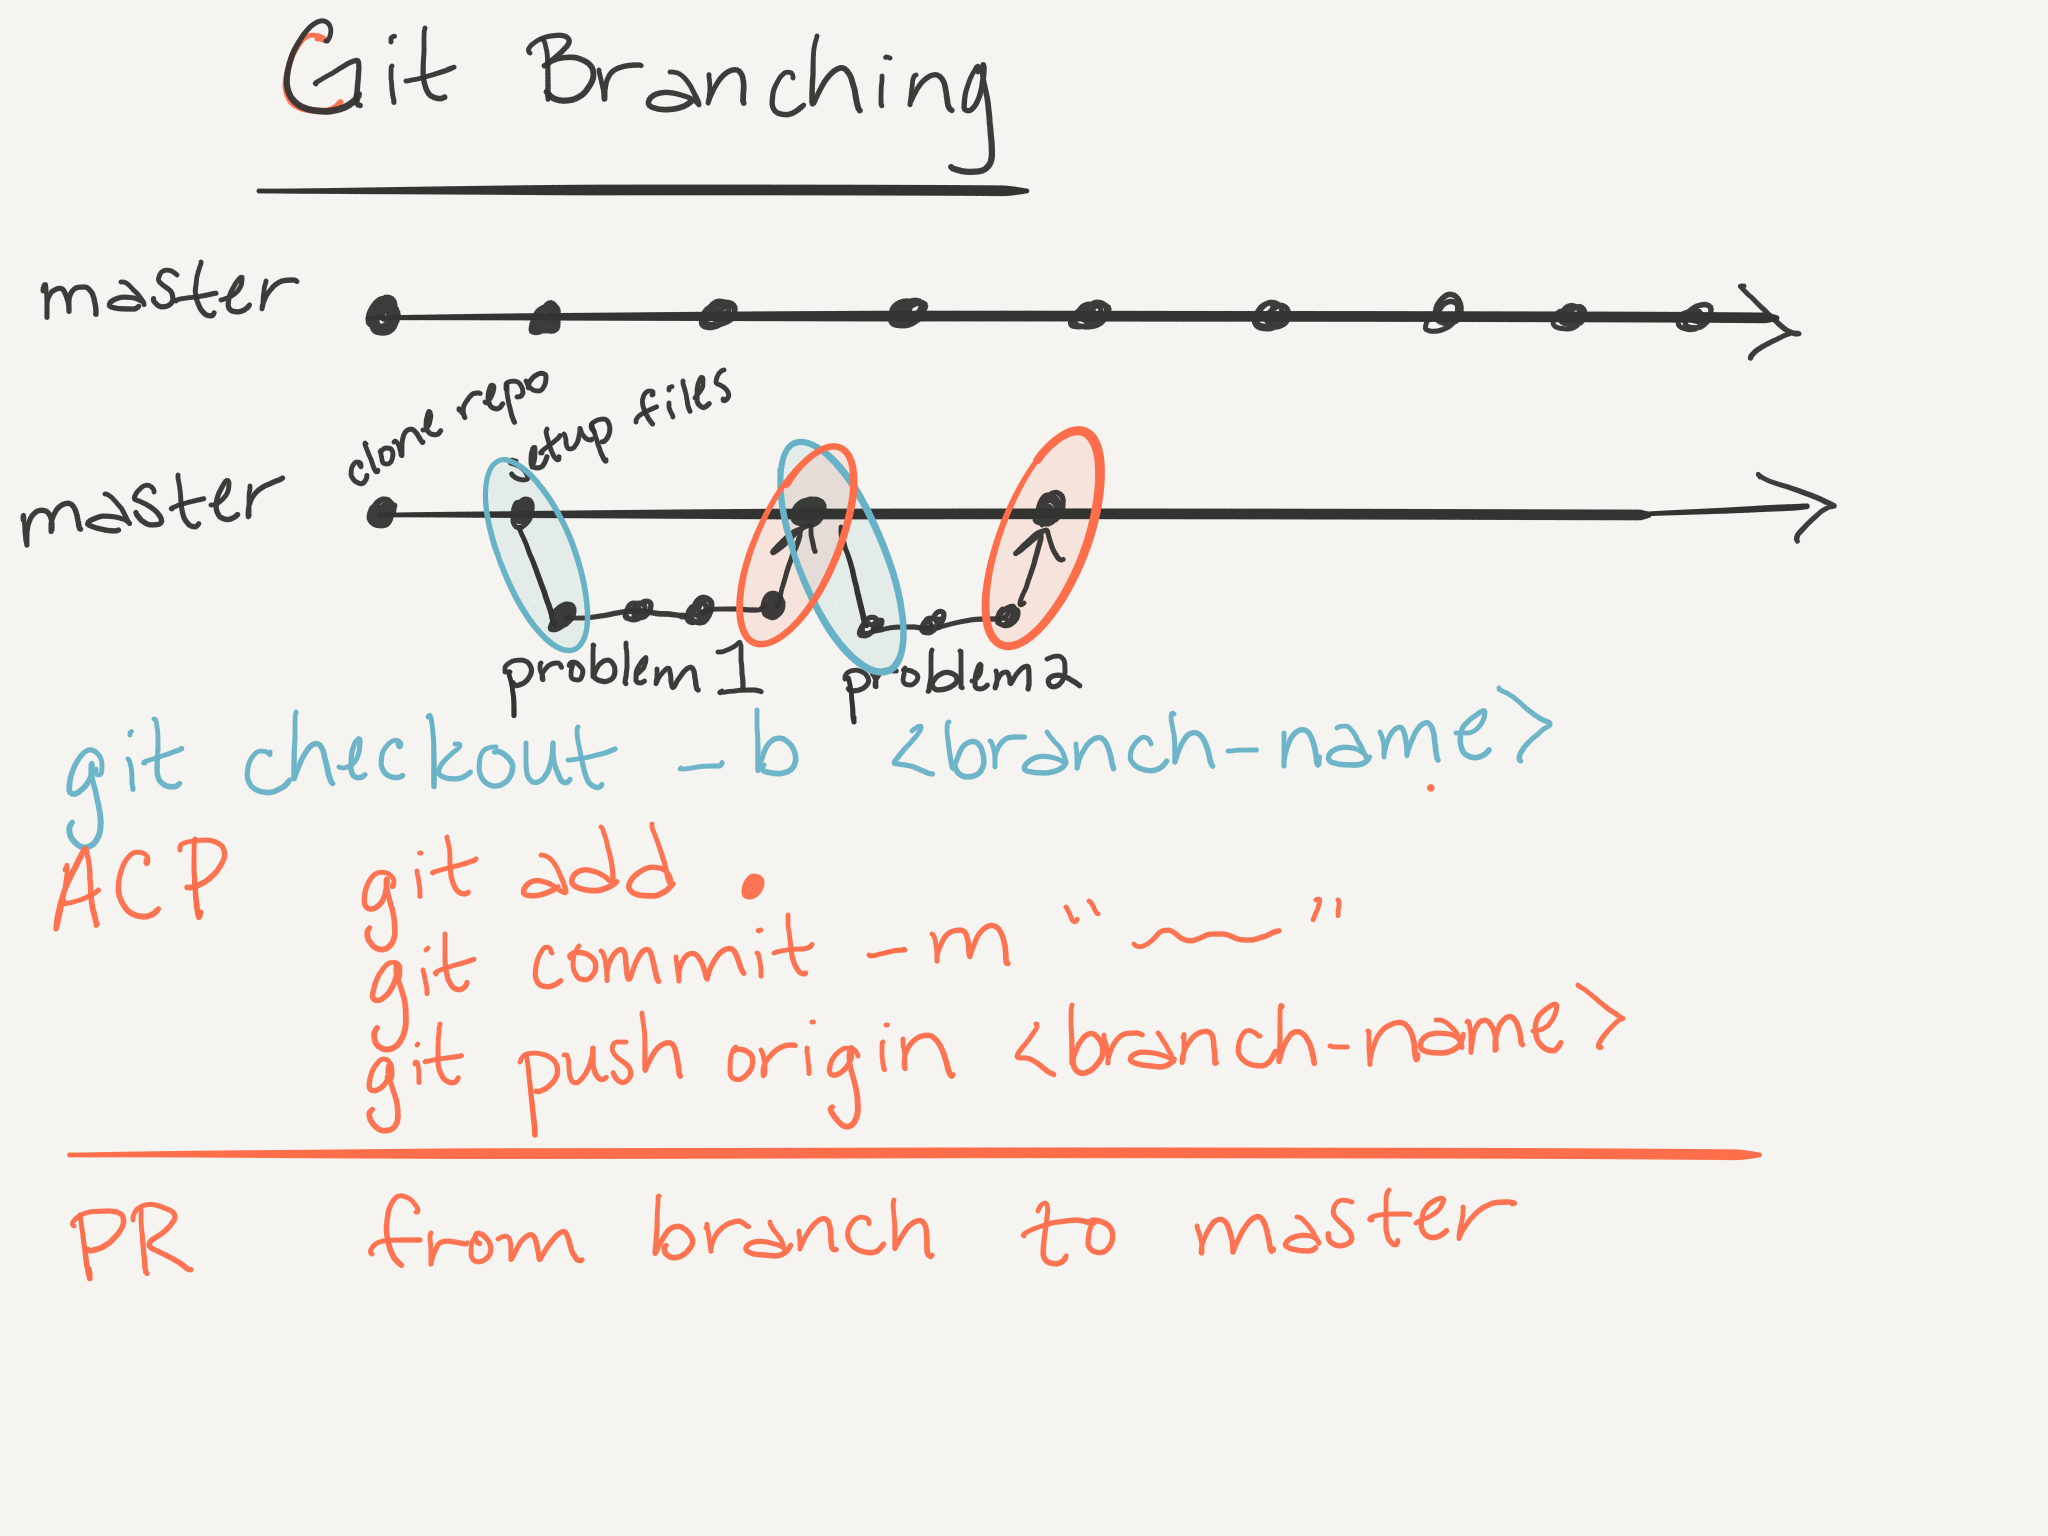 Git Branching
master
clone repo
setup files
master
problem 1
problem 2
git checkout -b <branch-name>
ACP git add .
git commit -m “ ”
git push origin <branch-name>
PR from branch to master